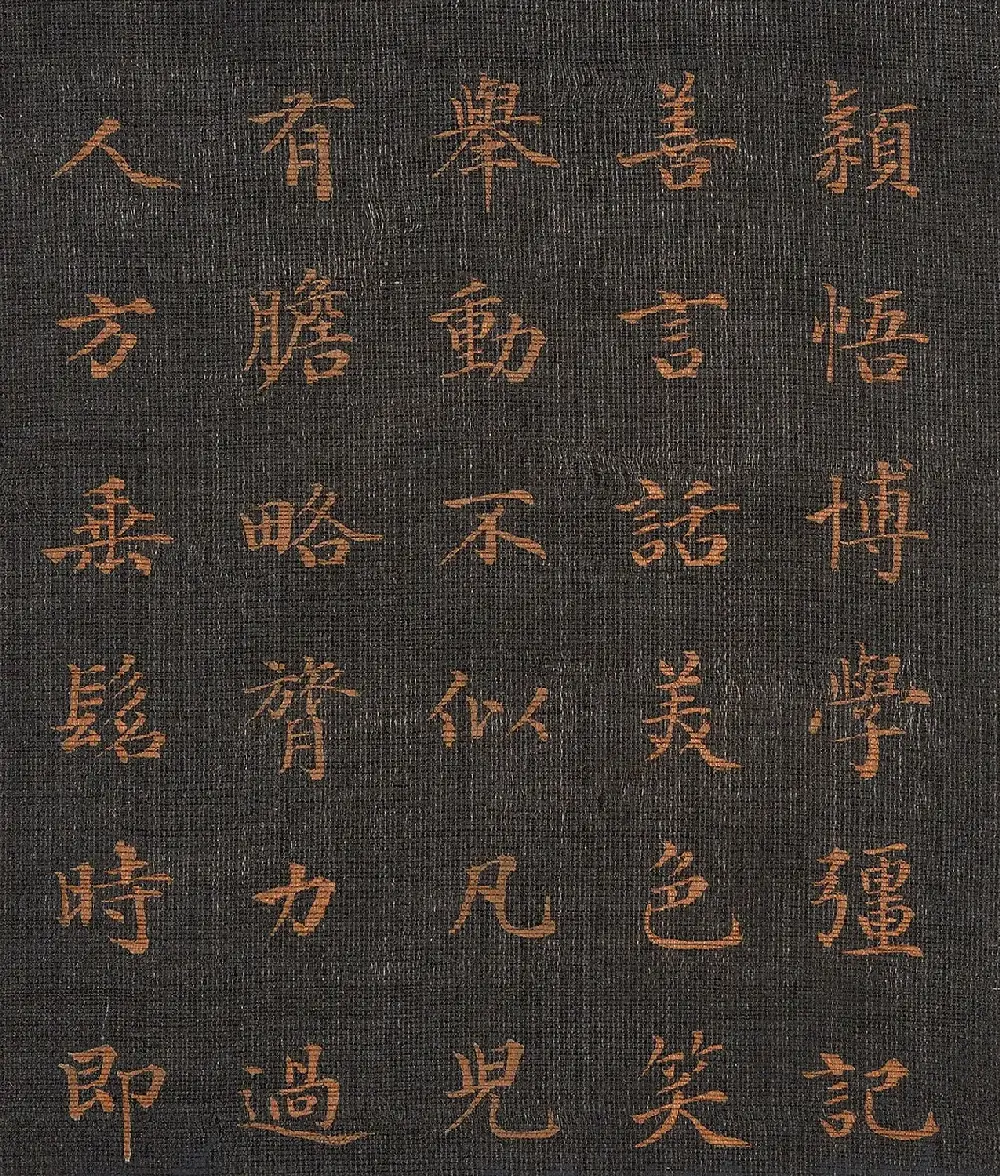 穎悟博學彊記
善言話美色笑
舉動不似凡兒
有膽略膂力過
人方垂髫時即